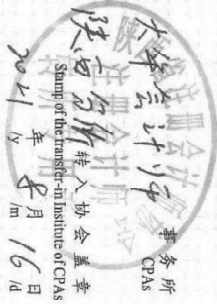 大华会计师
事务所
CPAs
陕西分所
转入协会盖章
Stamp of the transfer-in Institute of CPAs
2021年8月16日
/y /m /d